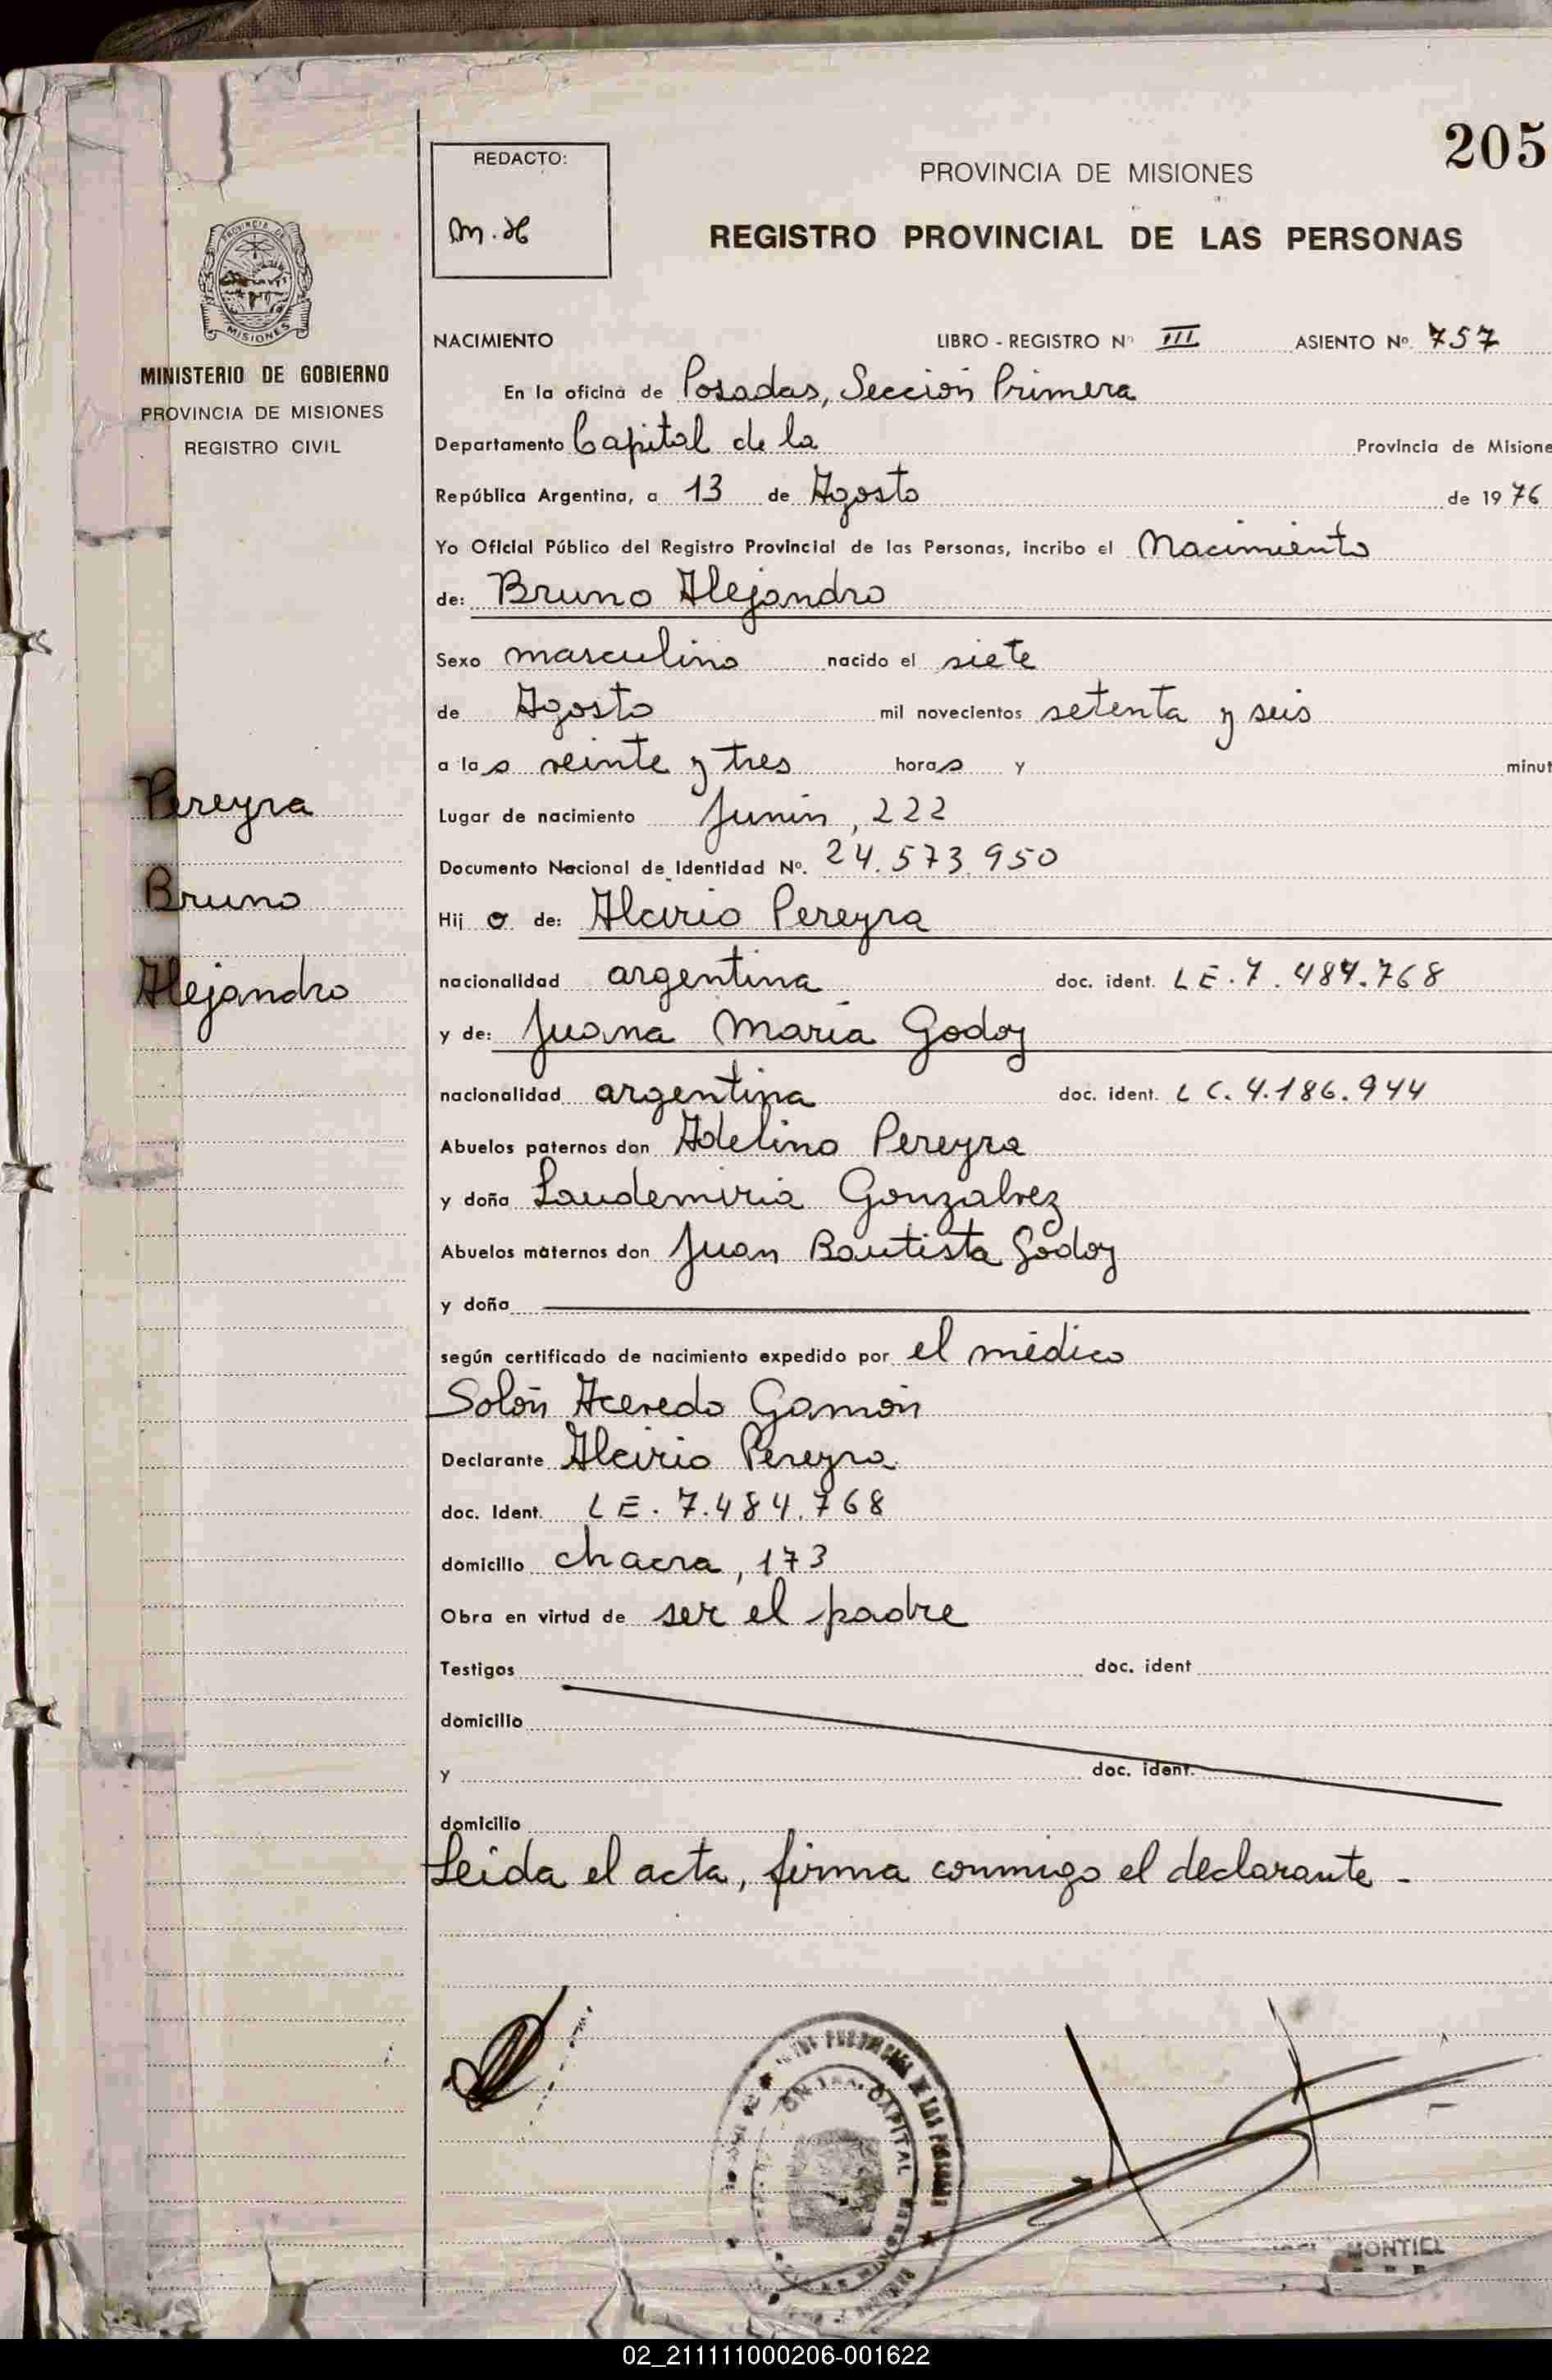 205
REDACTO:
M.H
PROVINCIA DE MISIONES
REGISTRO PROVINCIAL DE LAS PERSONAS
PROVINCIA DE
MISIONES
MINISTERIO DE GOBIERNO
PROVINCIA DE MISIONES
REGISTRO CIVIL
NACIMIENTO LIBRO - REGISTRO Nº III ASIENTO Nº 757
En la oficina de Posadas, Sección Primera
Departamento Capital de la Provincia de Misione
República Argentina, a 13 de Agosto de 1976
Yo Oficial Público del Registro Provincial de las Personas, incribo el Nacimiento
de: Bruno Alejandro
Sexo masculino nacido el siete
de Agosto mil novecientos setenta y seis
a las veinte y tres horas y minut
Pereyra
Lugar de nacimiento Junín, 222
Documento Nacional de Identidad Nº. 24.573.950
Bruno
Hijo de: Alcirio Pereyra
Alejandro
nacionalidad argentina doc. ident. LE.7.484.768
y de: Juana María Godoy
nacionalidad argentina doc. ident. LC.4.186.944
Abuelos paternos don Adelino Pereyra
y doña Laudemiria Gonzalvez
Abuelos maternos don Juan Bautista Godoy
y doña
según certificado de nacimiento expedido por el médico
Solón Acevedo Gamón
Declarante Alcirio Pereyra
doc. Ident. LE. 7.484.768
domicilio chacra, 173
Obra en virtud de ser el padre
Testigos doc. ident
domicilio
y doc. ident.
domicilio
Leida el acta, firma conmigo el declarante -
CAPITAL
MONTIEL
02_211111000206-001622